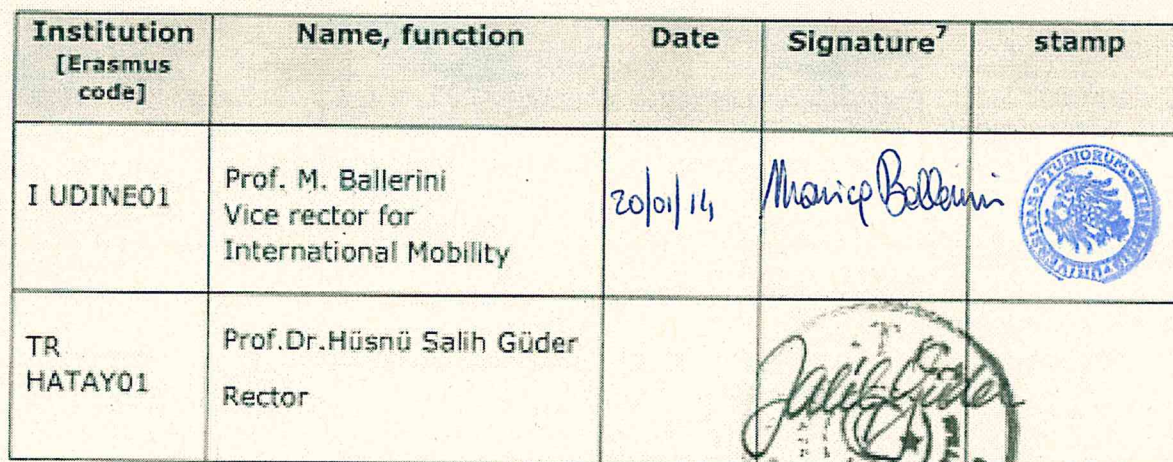 Institution
[Erasmus
code]
Name, function
Date
Signature7
stamp
I UDINE01
Prof. M. Ballerini
Vice rector for
International Mobility
20/01/14
Monica Ballerini
TR
HATAY01
Prof.Dr.Hüsnü Salih Güder
Rector
Salih Güder